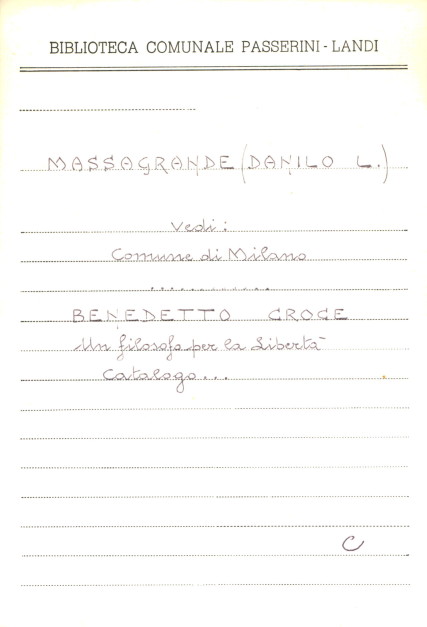 BIBLIOTECA COMUNALE PASSERINI - LANDI
MASSAGRANDE (DANILO L.)
Vedi:
Comune di Milano
............
BENEDETTO CROCE
Un filosofo per la Libertà
Catalogo...
C